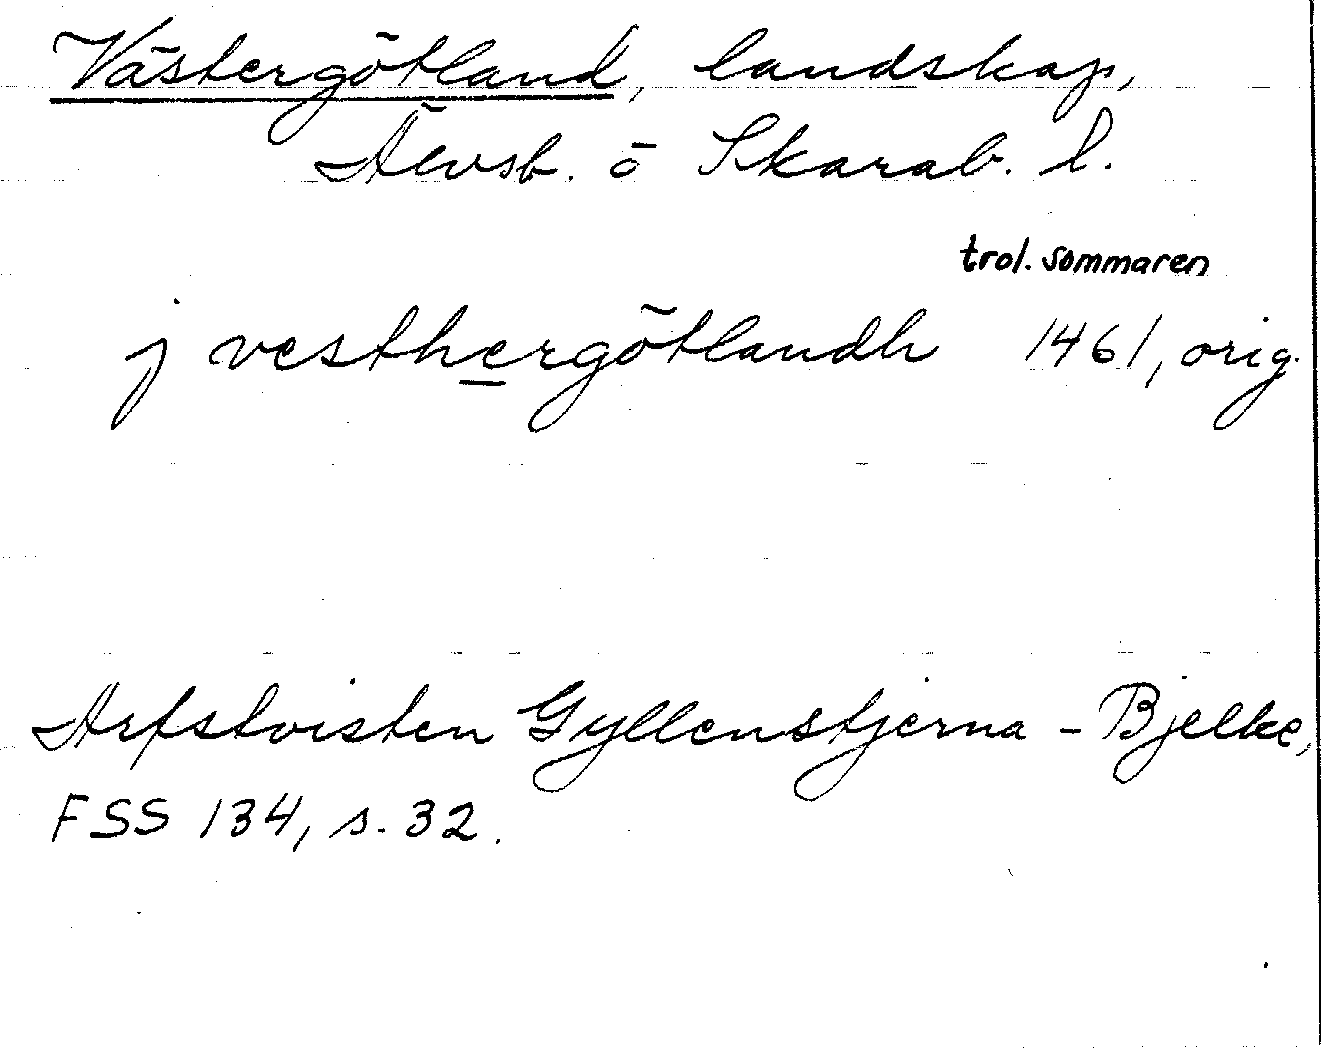 Västergötland, landskap,
Älvsb. o Skarab. l.
trol. sommaren
j vesthergötlandh 1461, orig.
Arfstvisten Gyllenstjerna - Bjelke,
FSS 134, s. 32.